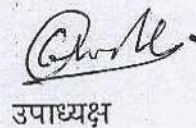 उपाध्यक्ष